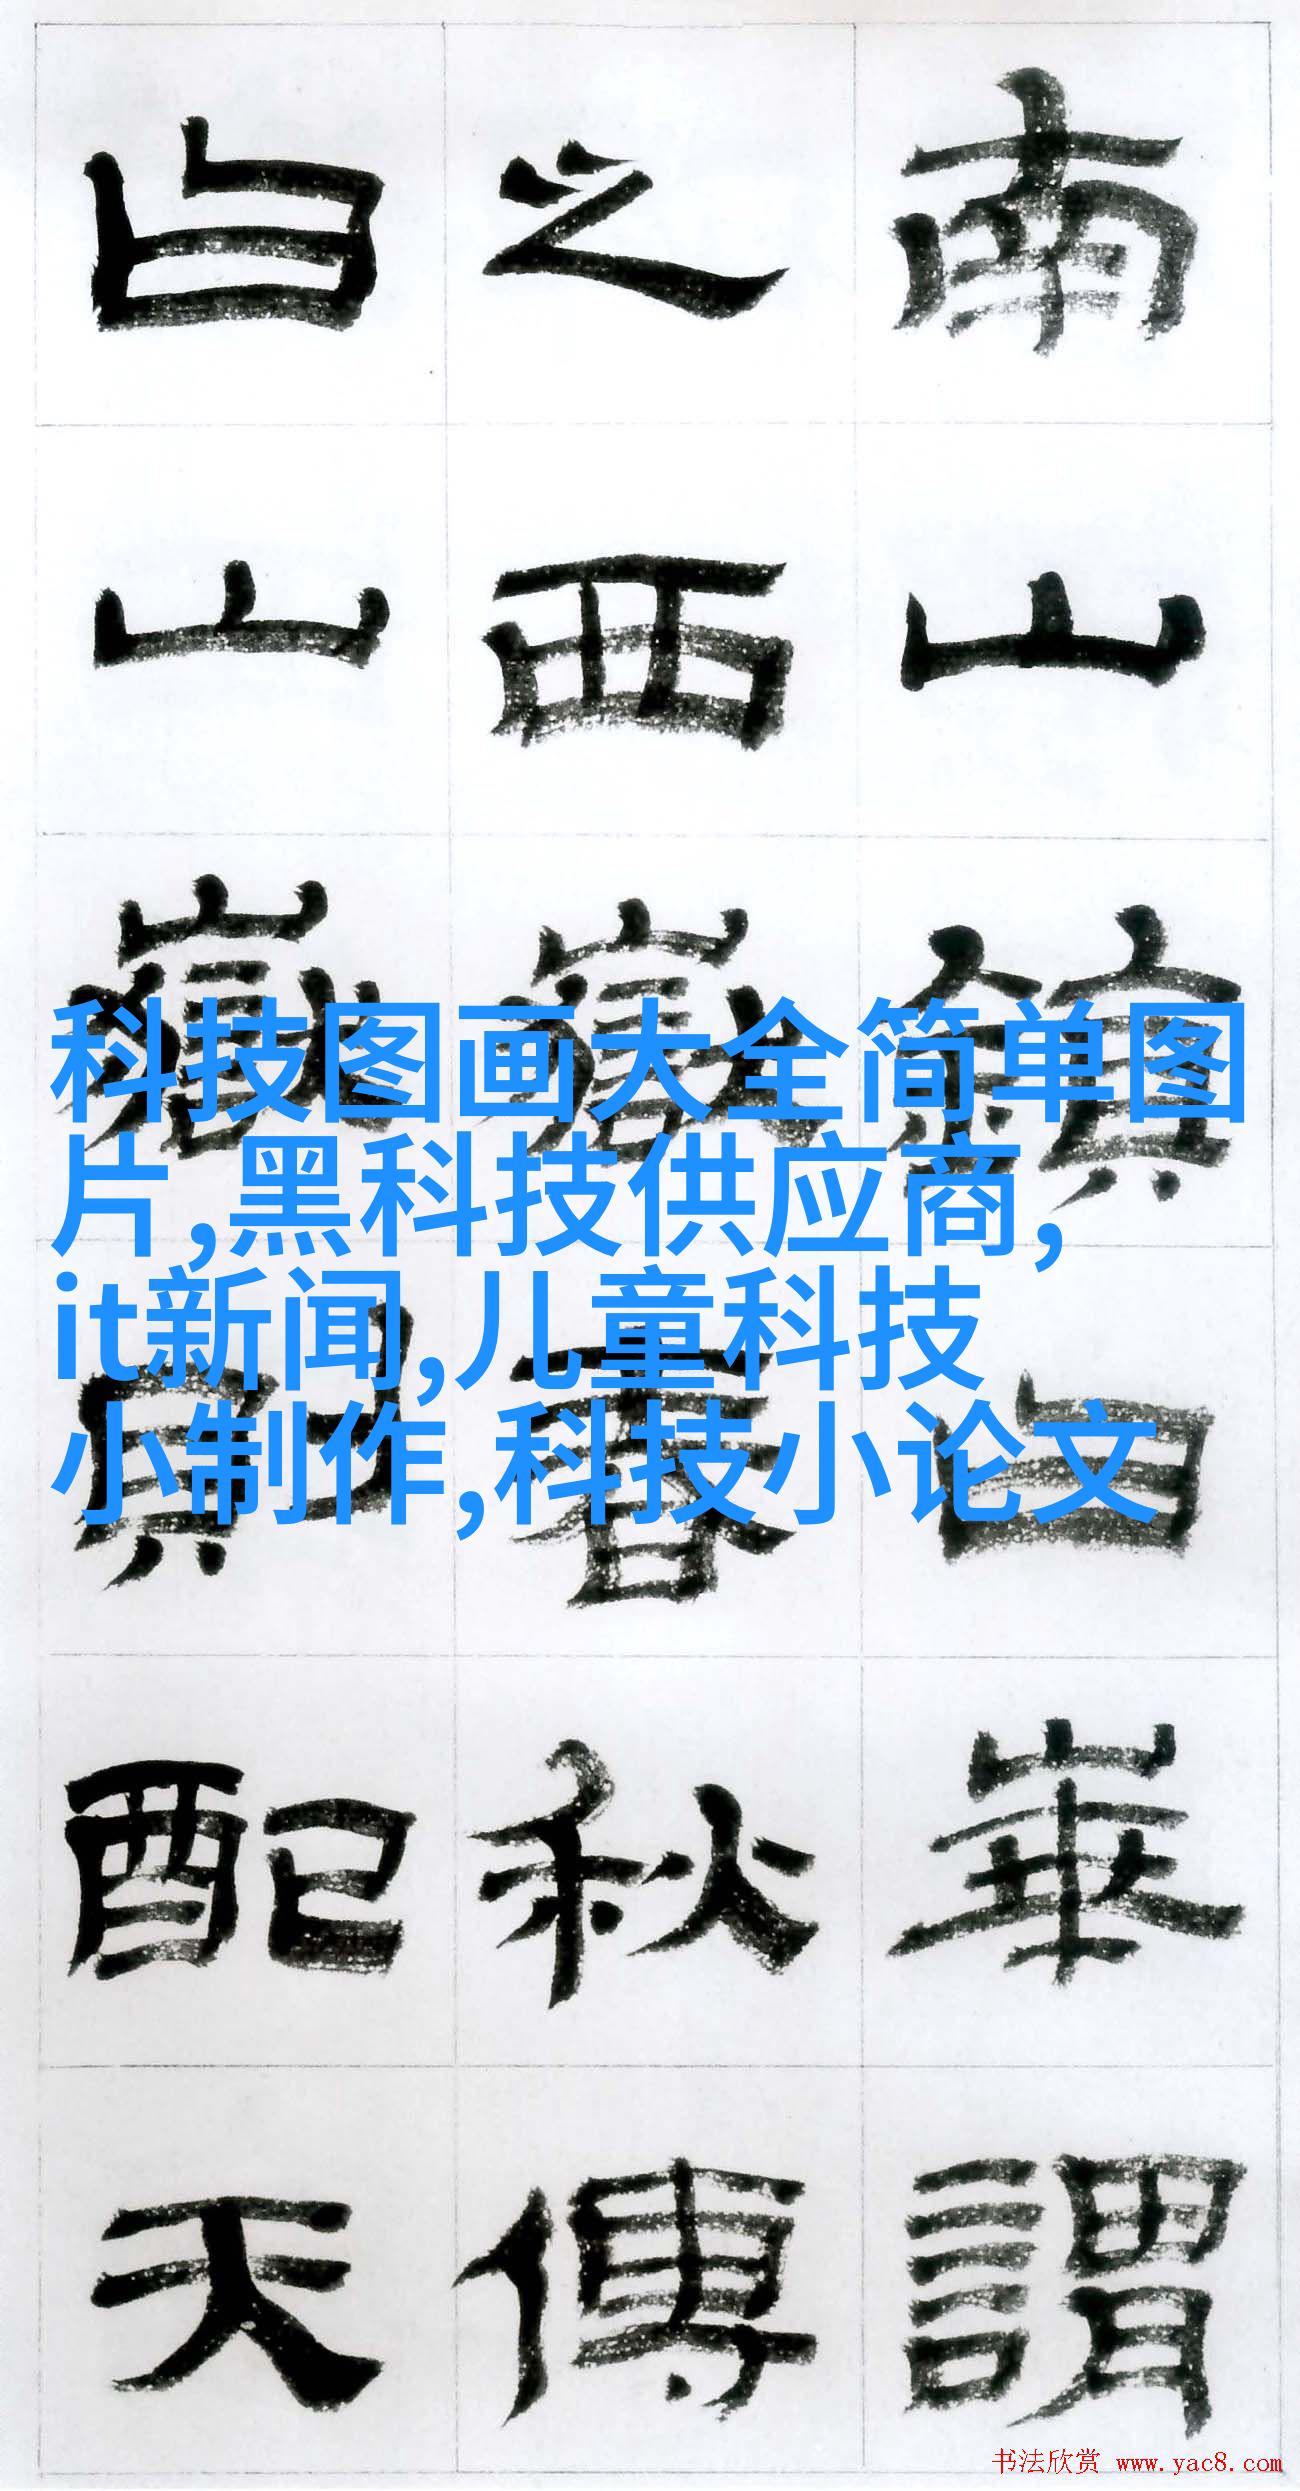 南山鎮曰崋謂
之西嶽春秋傳
曰山嶽則配天
科技图画大全简单图
片,黑科技供应商,
it新闻,儿童科技
小制作,科技小论文
书法欣赏 www.yac8.com